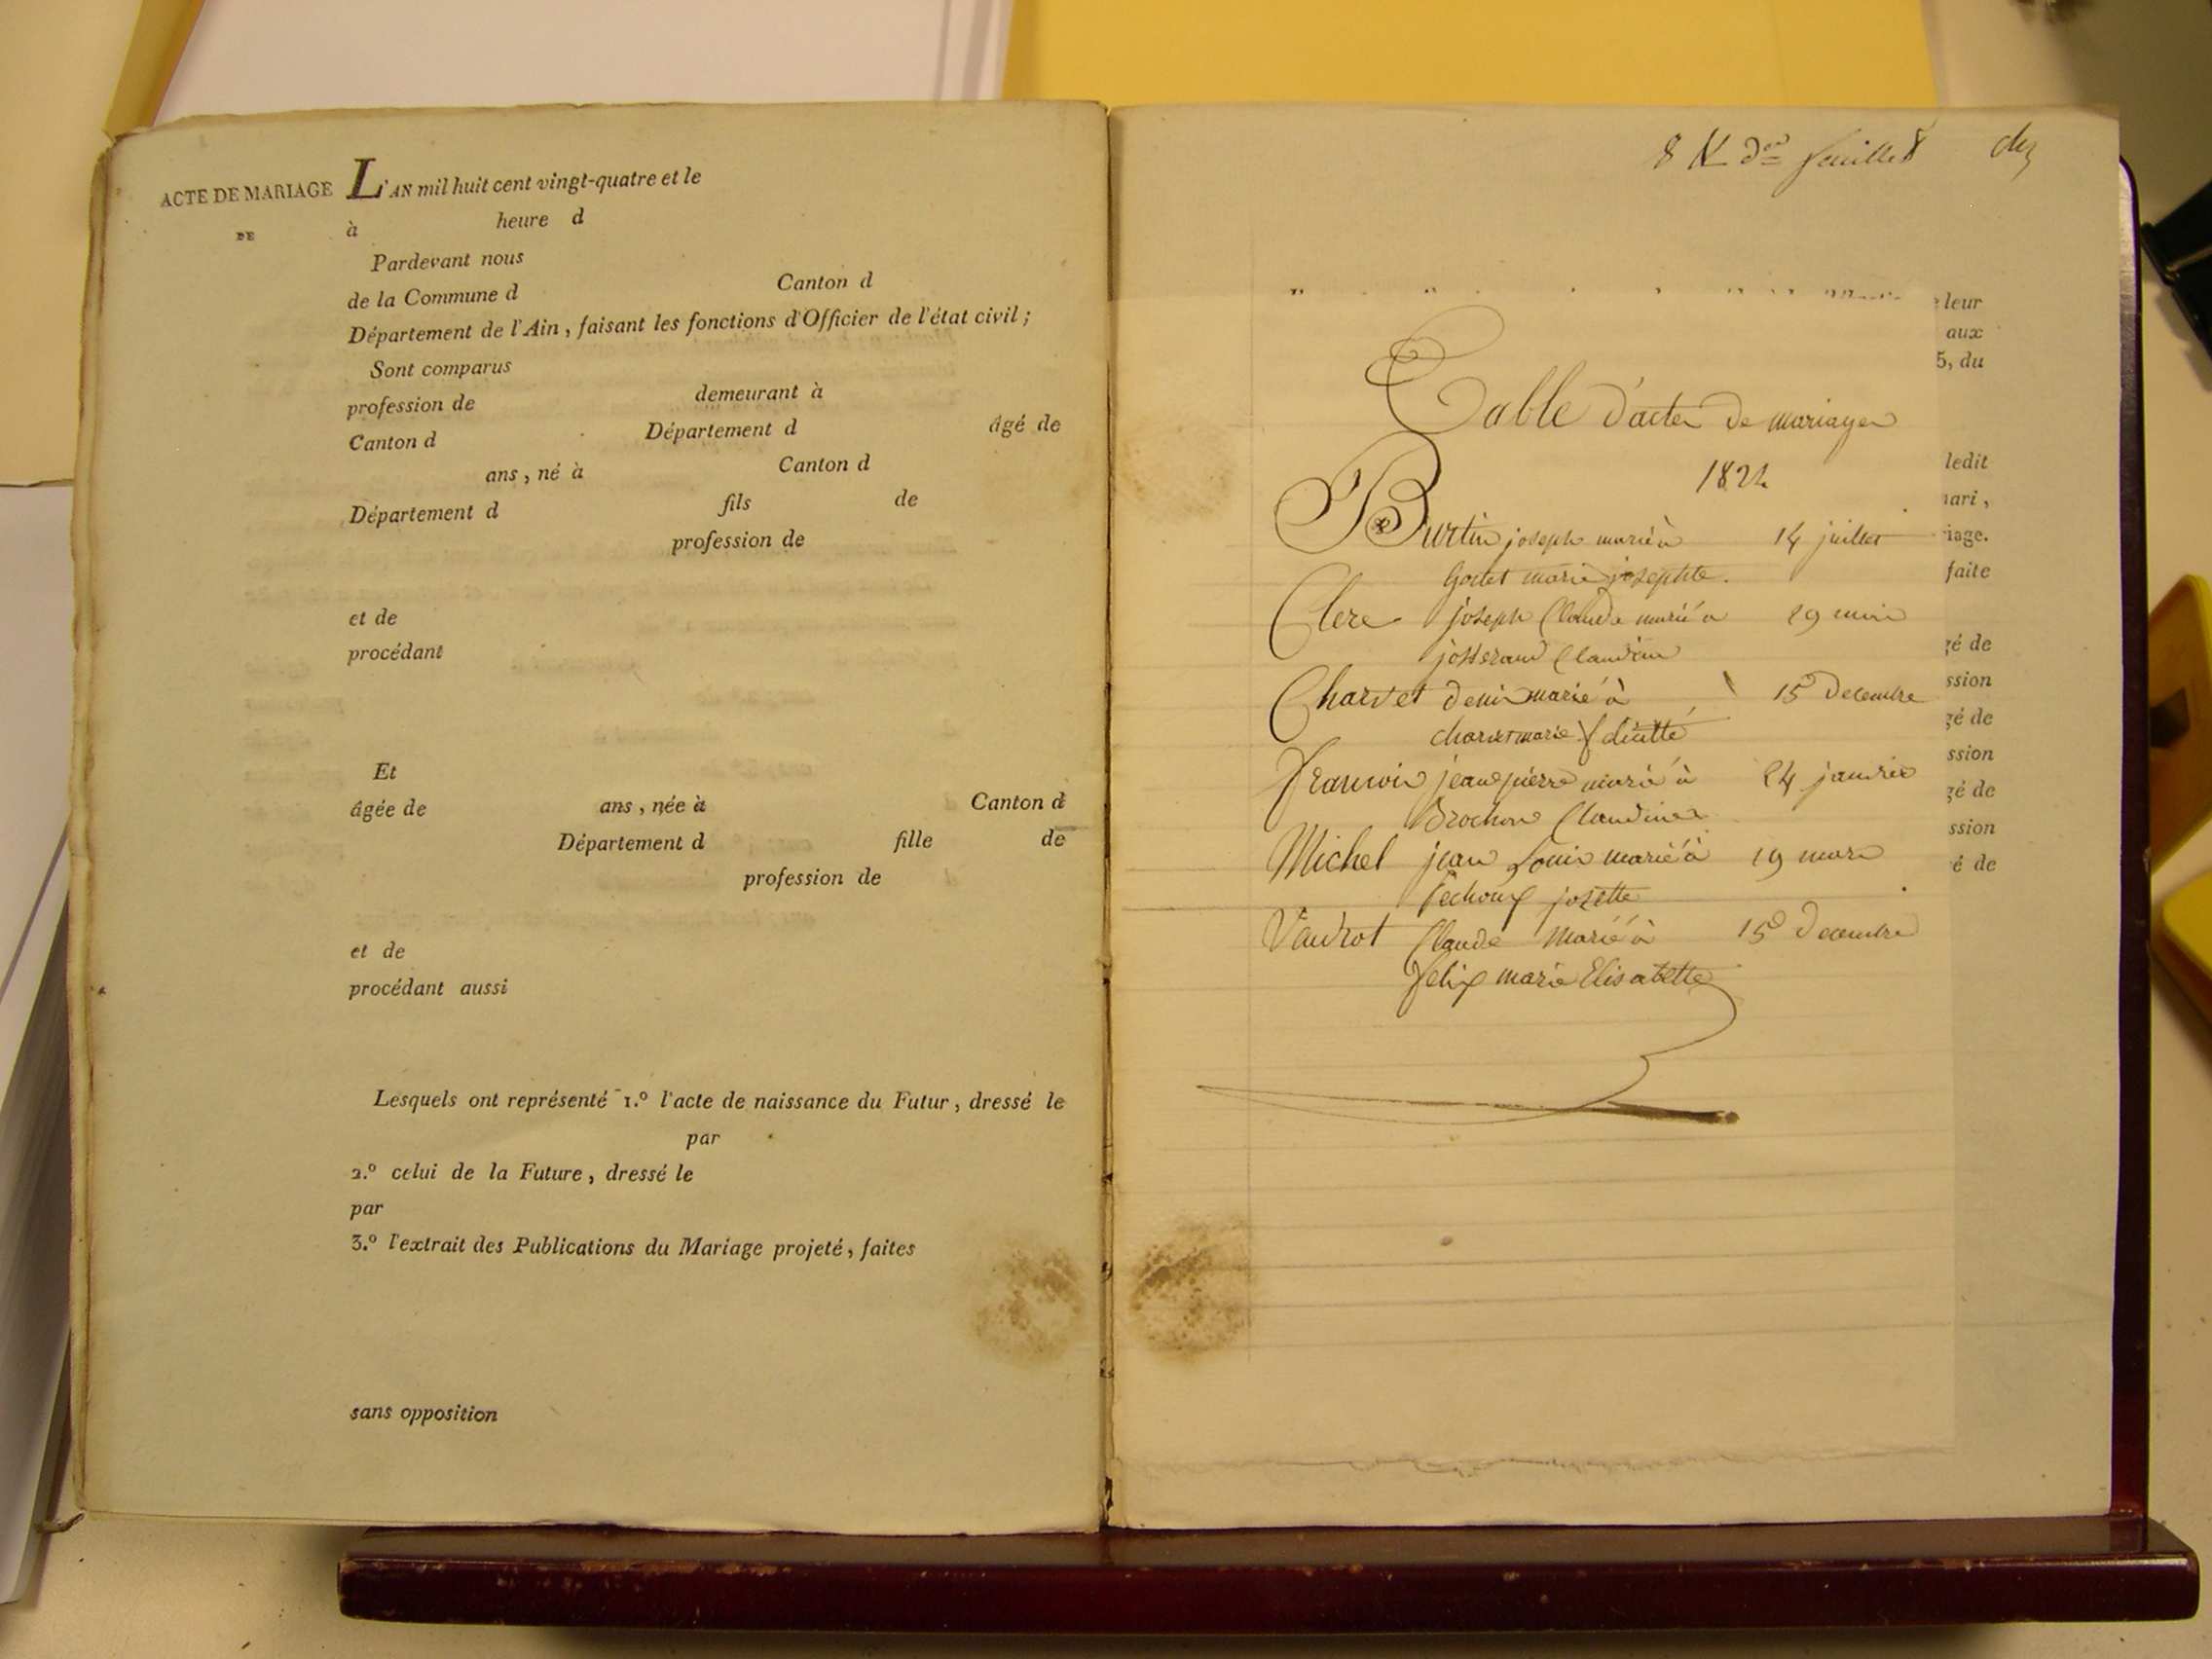 ACTE DE MARIAGE
DE
L'AN mil huit cent vingt-quatre et le
à heure d
Pardevant nous
de la Commune d Canton d
Département de l'Ain, faisant les fonctions d'Officier de l'état civil;
Sont comparus
profession de demeurant à
Canton d Département d âgé de
ans, né à Canton d
Département d fils de
profession de
et de
procédant
Et
âgée de ans, née à Canton d
Département d fille de
profession de
et de
procédant aussi
Lesquels ont représenté 1.º l'acte de naissance du Futur, dressé le
par
2.º celui de la Future, dressé le
par
3.º l'extrait des Publications du Mariage projeté, faites
sans opposition
8 feuillet
leur
aux
5, du
Table d'actes de mariages
1824
ledit
Burtin joseph marié à 14 juillet
iage.
marie josephte.
faite
Clerc joseph Claude marié a 29
josserand Claudine
gé de
Charvet denis marié à 15 Decembre
ssion
charvet marie
gé de
ssion
jean pierre marié à 24 janvier
gé de
Brochon Claudine
ssion
Michel jean Louis marié à 19 mars
é de
josette
Vaudrot Claude Marié à 15 Decembre
felix marie Elisabette